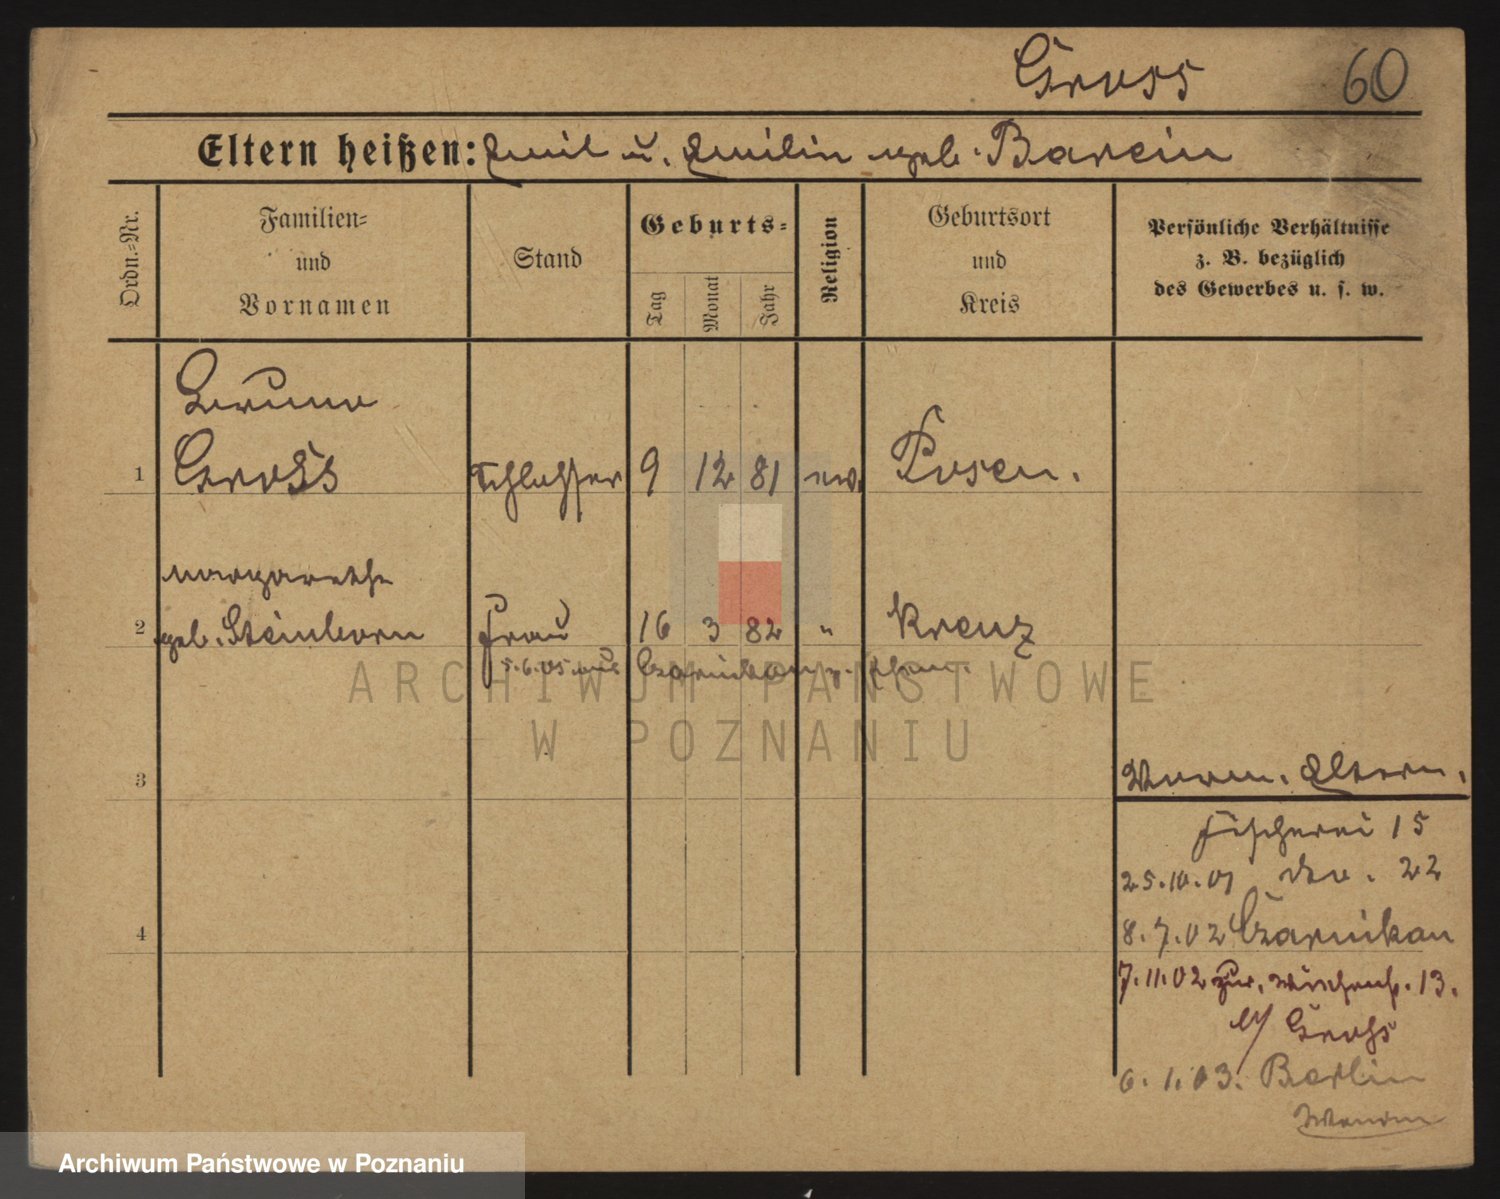 Gross 60
Eltern heißen: Emil u. Emilie geb. Barein
Ordn.=Nr.
Familien=
und
Vornamen
Stand
Geburts=
Tag
Monat
Jahr
Religion
Geburtsort
und
Kreis
Persönliche Verhältnisse
z. B. bezüglich
des Gewerbes u. s. w.
Bruno
1 Gross Schlosser 9 12 81 ev. Posen.
Margarethe
2 geb. Steinborn Frau 16 3 82 " Kreuz
5.6.05 aus Czarnikau
ARCHIWUM PAŃSTWOWE
W POZNANIU
3
Eltern.
Fischerei 15
25.10.01 do. 22
4
8.7.02 Czarnikau
7.11.02 zur. 13.
b/ Groß
6.1.03. Berlin
Archiwum Państwowe w Poznaniu